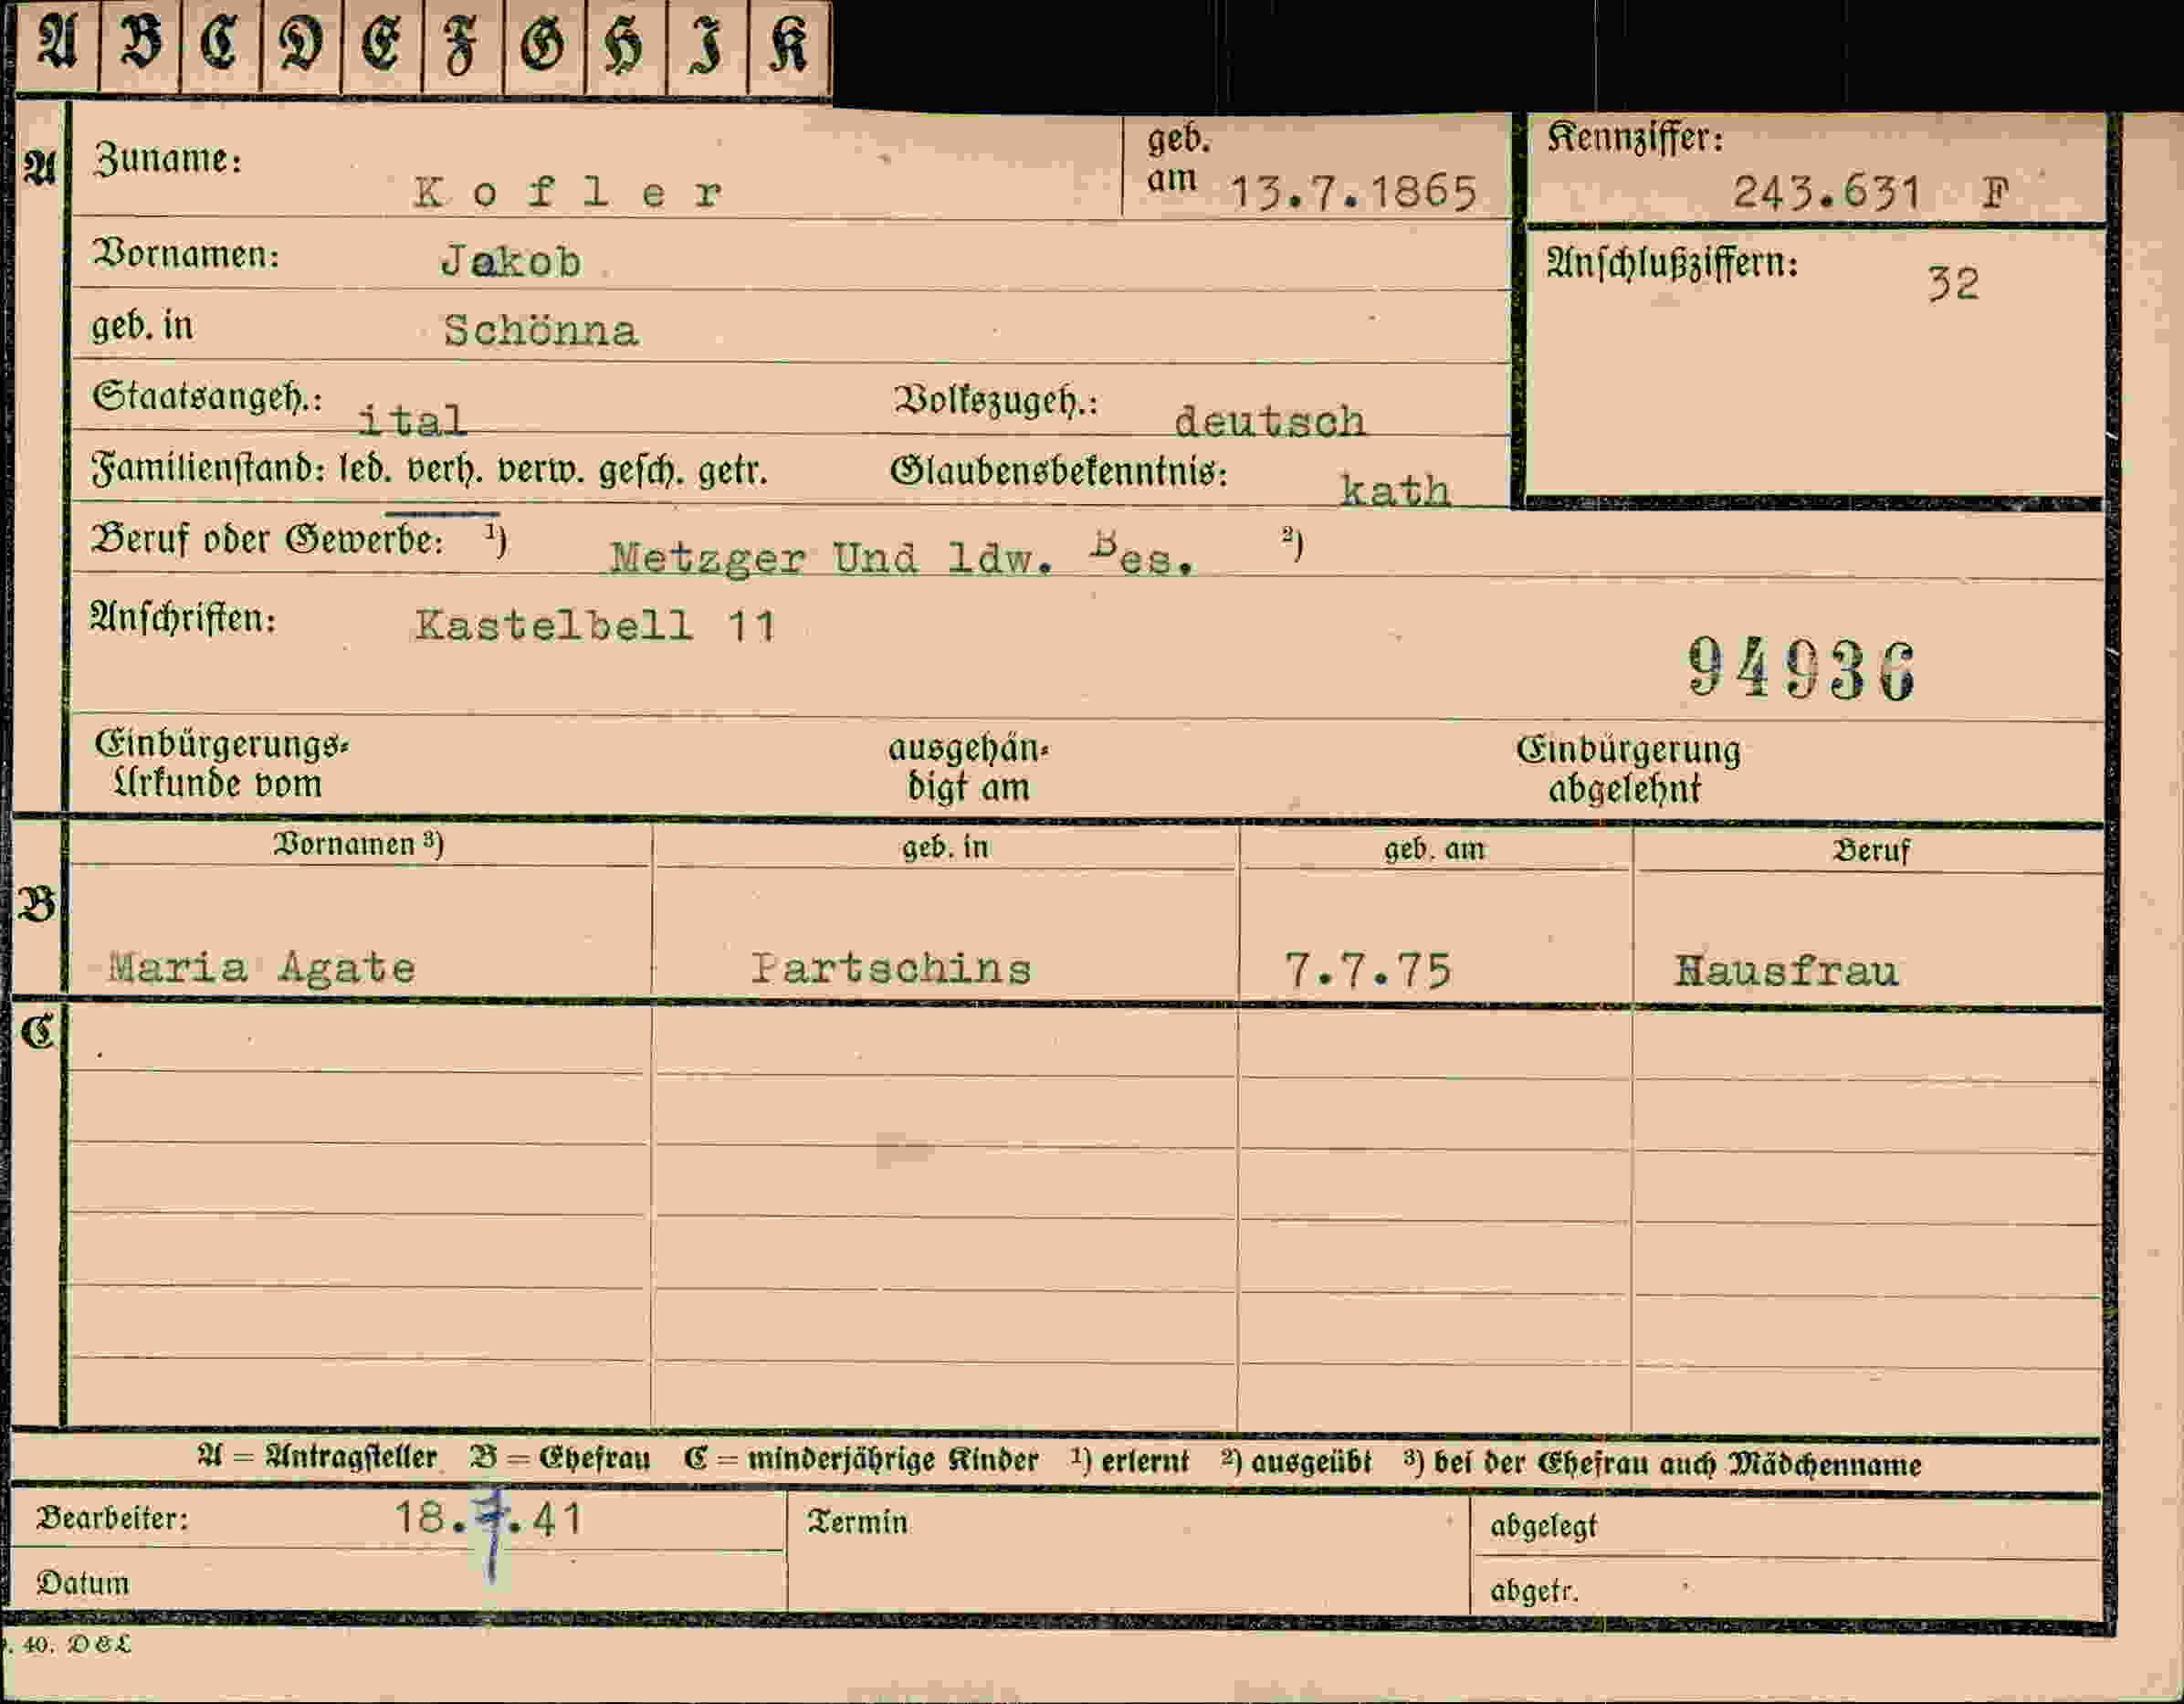 A B C D E F G H I K
A Zuname: Kofler geb. am 13.7.1865 Kennziffer: 243.631 F
Vornamen: Jakob Anschlußziffern: 32
geb. in Schönna
Staatsangeh.: ital Volkszugeh.: deutsch
Familienstand: led. verh. verw. gesch. getr. Glaubensbekenntnis: kath
Beruf oder Gewerbe: ¹) Metzger Und ldw. Bes. ²)
Anschriften: Kastelbell 11
94936
Einbürgerungs-Urkunde vom ausgehändigt am Einbürgerung abgelehnt
B Vornamen ³) geb. in geb. am Beruf
Maria Agate Partschins 7.7.75 Hausfrau
C
A = Antragsteller B = Ehefrau C = minderjährige Kinder ¹) erlernt ²) ausgeübt ³) bei der Ehefrau auch Mädchenname
Bearbeiter: 18.7.41 Termin abgelegt
Datum abgetr.
. 40. D&L